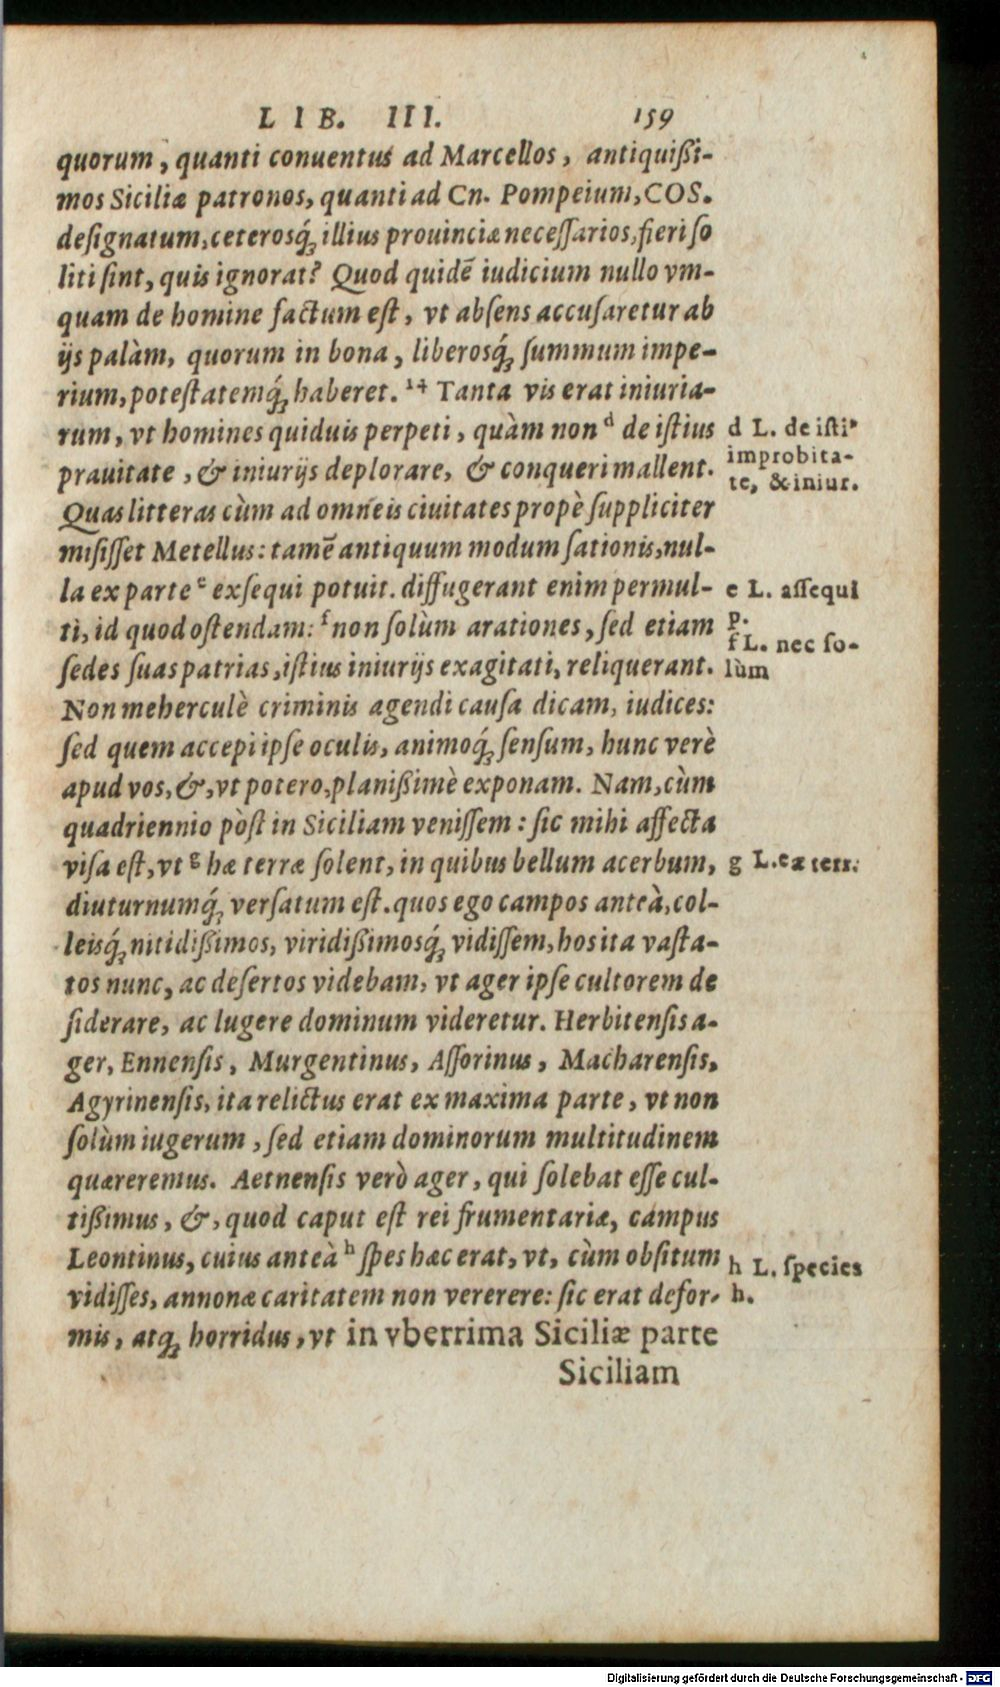 LIB. III. 159
quorum, quanti conuentus ad Marcellos, antiquißi-
mos Siciliæ patronos, quanti ad Cn. Pompeium, COS.
deſignatum, ceterosq́; illius prouinciæ neceſſarios, fieri ſo
liti ſint, quis ignorat? Quod quidē iudicium nullo vm-
quam de homine factum eſt, vt abſens accuſaretur ab
ijs palàm, quorum in bona, liberosq́; ſummum impe-
rium, poteſtatemq́; haberet. 14 Tanta vis erat iniuria-
rum, vt homines quiduis perpeti, quàm non d de iſtius
prauitate, & iniurijs deplorare, & conqueri mallent.
Quas litteras cùm ad omneis ciuitates propè ſuppliciter
miſiſſet Metellus: tamē antiquum modum ſationis, nul-
la ex parte e exſequi potuit. diffugerant enim permul-
ti, id quod oſtendam: f non ſolùm arationes, ſed etiam
ſedes ſuas patrias, iſtius iniurijs exagitati, reliquerant.
Non meherculè criminis agendi cauſa dicam, iudices:
ſed quem accepi ipſe oculis, animoq́; ſenſum, hunc verè
apud vos, &, vt potero, planißimè exponam. Nam, cùm
quadriennio pòſt in Siciliam veniſſem: ſic mihi affecta
viſa eſt, vt g hæ terræ ſolent, in quibus bellum acerbum,
diuturnumq́; verſatum eſt. quos ego campos anteà, col-
leisq́; nitidißimos, viridißimosq́; vidiſſem, hos ita vaſta-
tos nunc, ac deſertos videbam, vt ager ipſe cultorem de
ſiderare, ac lugere dominum videretur. Herbitenſis a-
ger, Ennenſis, Murgentinus, Aſſorinus, Macharenſis,
Agyrinenſis, ita relictus erat ex maxima parte, vt non
ſolùm iugerum, ſed etiam dominorum multitudinem
quæreremus. Aetnenſis verò ager, qui ſolebat eſſe cul-
tißimus, &, quod caput eſt rei frumentariæ, campus
Leontinus, cuius anteà h ſpes hæc erat, vt, cùm obſitum
vidiſſes, annonæ caritatem non vererere: ſic erat defor-
mis, atq; horridus, vt in vberrima Siciliæ parte
Siciliam
d L. de iſti'
improbita-
te, & iniur.
e L. aſſequi
p.
f L. nec ſo-
lùm
g L. eæ terr.
h L. ſpecies
h.
Digitalisierung gefördert durch die Deutsche Forschungsgemeinschaft - DFG